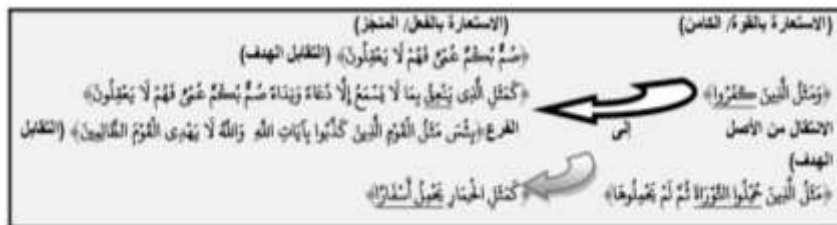 (الاستعارة بالقوة/ الكامن) (الاستعارة بالفعل/ المنجز)
﴿صُمٌّ بُكْمٌ عُمْيٌ فَهُمْ لَا يَعْقِلُونَ﴾ (التقابل الهدف)
﴿وَمَثَلُ الَّذِينَ كَفَرُوا﴾ ﴿كَمَثَلِ الَّذِي يَنْعِقُ بِمَا لَا يَسْمَعُ إِلَّا دُعَاءً وَنِدَاءً صُمٌّ بُكْمٌ عُمْيٌ فَهُمْ لَا يَعْقِلُونَ﴾
الانتقال من الأصل إلى الفرع ﴿بِئْسَ مَثَلُ الْقَوْمِ الَّذِينَ كَذَّبُوا بِآيَاتِ اللَّهِ وَاللَّهُ لَا يَهْدِي الْقَوْمَ الظَّالِمِينَ﴾ (التقابل
الهدف)
﴿مَثَلُ الَّذِينَ حُمِّلُوا التَّوْرَاةَ ثُمَّ لَمْ يَحْمِلُوهَا﴾ ﴿كَمَثَلِ الْحِمَارِ يَحْمِلُ أَسْفَارًا﴾